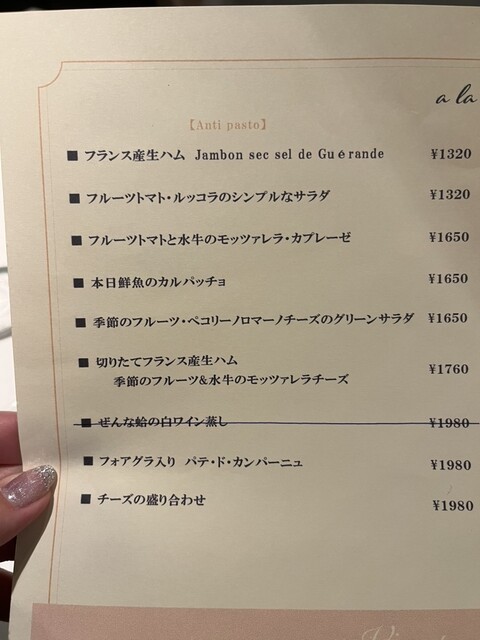 a la
【Anti pasto】
■ フランス産生ハム Jambon sec sel de Guérande ¥1320
■ フルーツトマト・ルッコラのシンプルなサラダ ¥1320
■ フルーツトマトと水牛のモッツァレラ・カプレーゼ ¥1650
■ 本日鮮魚のカルパッチョ ¥1650
■ 季節のフルーツ・ペコリーノロマーノチーズのグリーンサラダ ¥1650
■ 切りたてフランス産生ハム
季節のフルーツ&水牛のモッツァレラチーズ ¥1760
■ ぜんな蛤の白ワイン蒸し ¥1980
■ フォアグラ入り パテ・ド・カンパーニュ ¥1980
■ チーズの盛り合わせ ¥1980